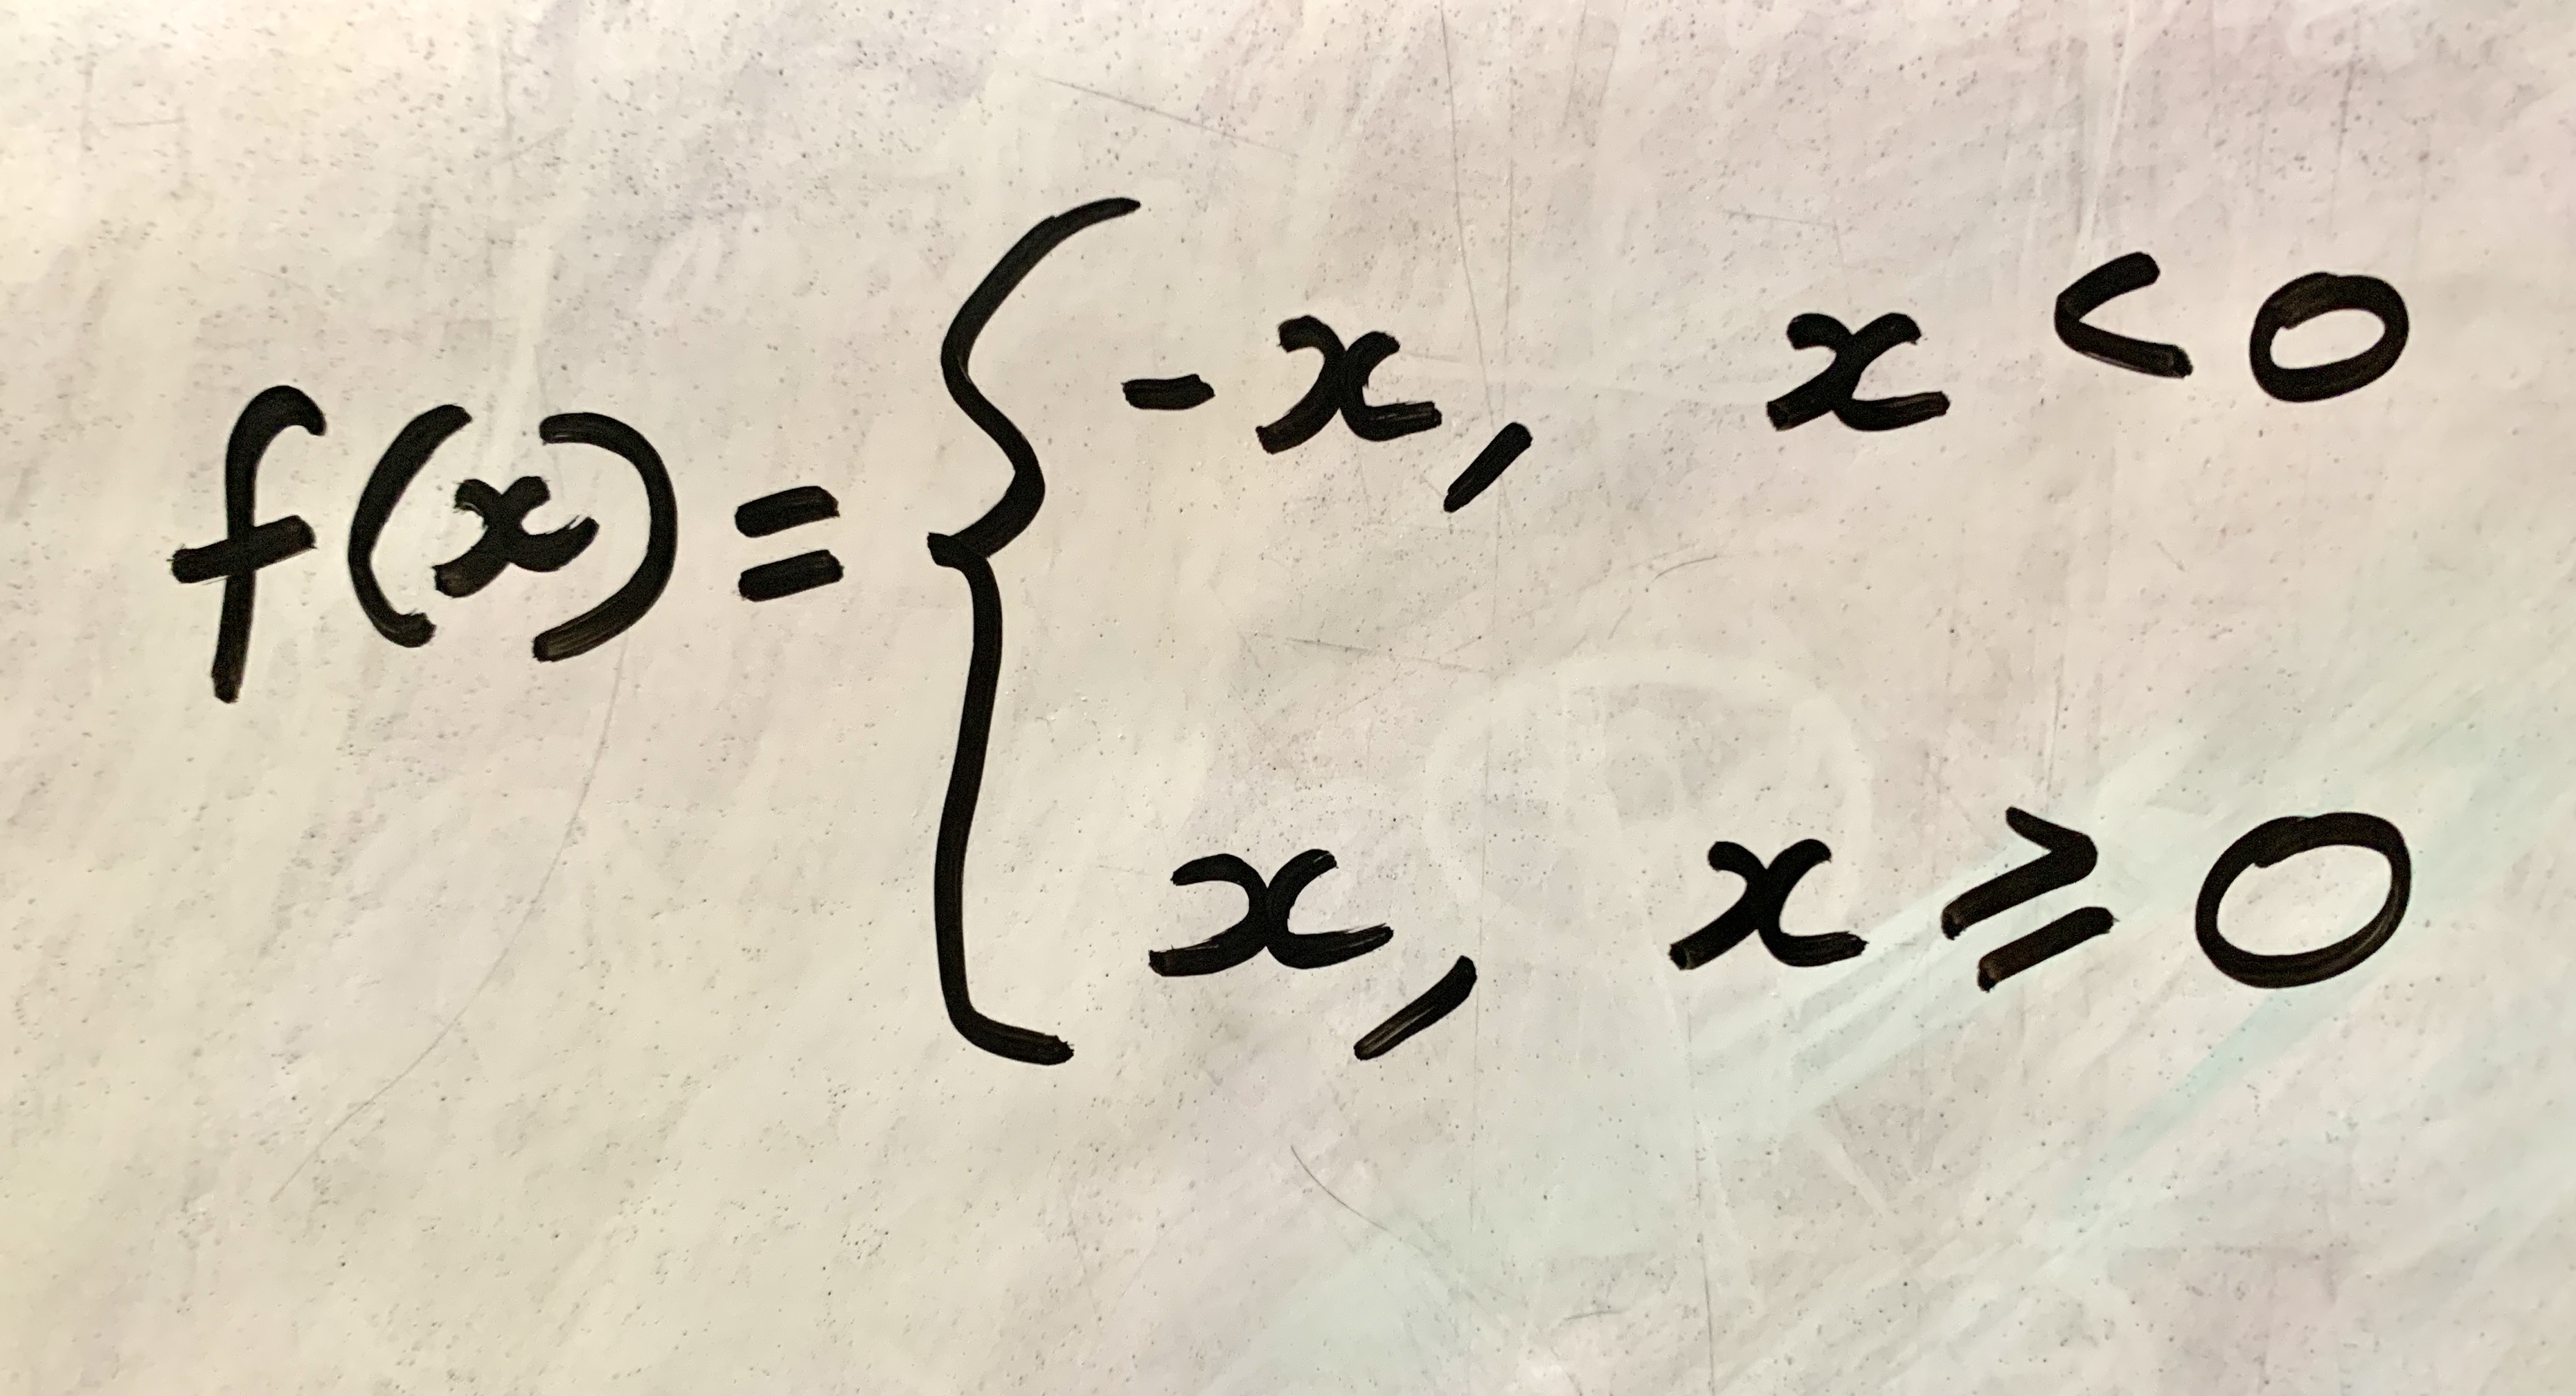 f(x) = { -x, x < 0
x, x ⩾ 0